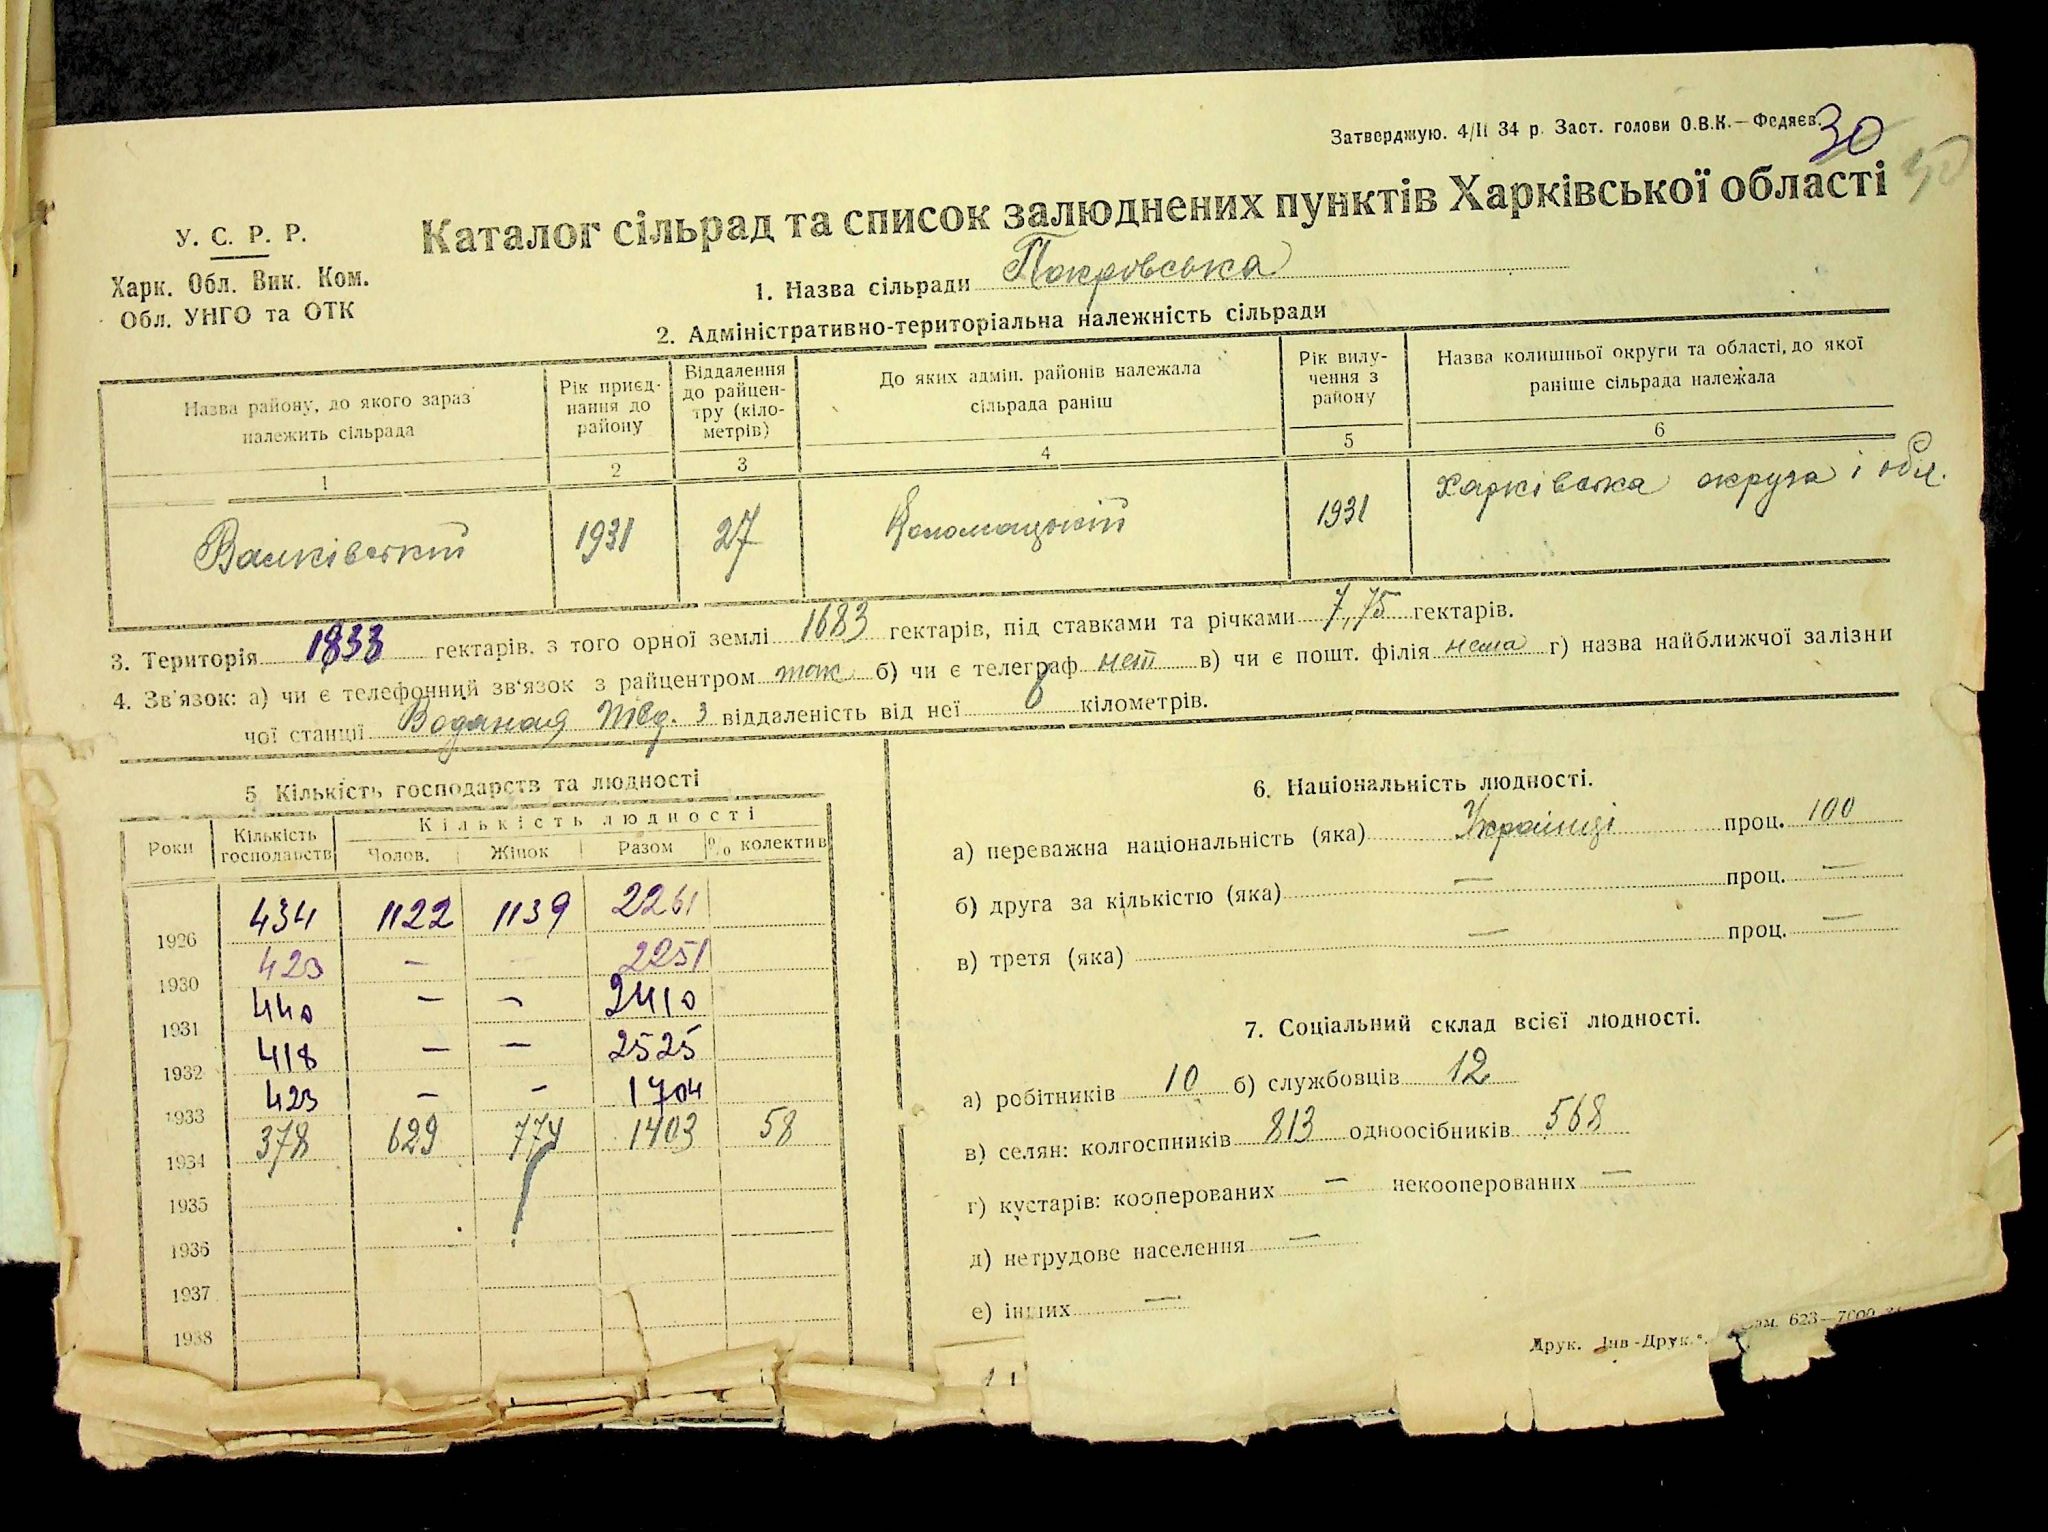 Затверджую. 4/II 34 р. Заст. голови О.В.К.—Федяєв.
30
У. С. Р. Р.
Харк. Обл. Вик. Ком.
Обл. УНГО та ОТК
Каталог сільрад та список залюднених пунктів Харківської області
1. Назва сільради Покровська
2. Адміністративно-територіальна належність сільради
Назва району, до якого зараз належить сільрада | Рік приєднання до району | Віддалення до райцентру (кілометрів) | До яких адмін. районів належала сільрада раніш | Рік вилучення з району | Назва колишньої округи та області, до якої раніше сільрада належала
1 | 2 | 3 | 4 | 5 | 6
Валківський | 1931 | 27 | Коломацький | 1931 | Харківська округа і обл.
3. Територія 1833 гектарів, з того орної землі 1683 гектарів, під ставками та річками 7,75 гектарів.
4. Зв'язок: а) чи є телефонний зв'язок з райцентром так б) чи є телеграф нет в) чи є пошт. філія нема г) назва найближчої залізни
чої станції Водяная віддаленість від неї 8 кілометрів.
5 Кількість господарств та людності
Роки | Кількість господарств | Кількість людності
Чолов. | Жінок | Разом | % колектив
1926 | 434 | 1122 | 1139 | 2261
1930 | 423 | — | 2251
1931 | 440 | — | — | 2410
1932 | 418 | — | — | 2525
1933 | 423 | — | — | 1704
1934 | 378 | 629 | 774 | 1403 | 58
1935
1936
1937
1938
6. Національність людності.
а) переважна національність (яка) Українці проц. 100
б) друга за кількістю (яка) — проц. —
в) третя (яка) — проц. —
7. Соціальний склад всієї людності.
а) робітників 10 б) службовців 12
в) селян: колгоспників 813 одноосібників 568
г) кустарів: кооперованих — некооперованих —
д) нетрудове населення —
е) інших —
Друк. „Інв-Друк.". Зам. 623—7000